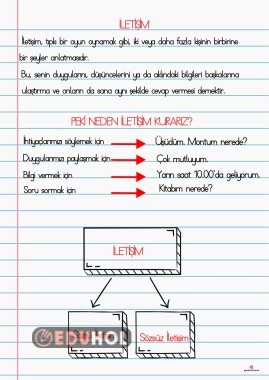 İLETİŞİM
İletişim, tıpkı bir oyun oynamak gibi, iki veya daha fazla kişinin birbirine
bir şeyler anlatmasıdır.
Bu, senin duygularını, düşüncelerini ya da aklındaki bilgileri başkalarına
ulaştırma ve onların da sana aynı şekilde cevap vermesi demektir.
PEKİ NEDEN İLETİŞİM KURARIZ?
İhtiyaçlarımızı söylemek için Üşüdüm. Montum nerede?
Duygularımızı paylaşmak için Çok mutluyum.
Bilgi vermek için Yarın saat 10.00'da geliyorum.
Soru sormak için Kitabım nerede?
İLETİŞİM
Sözsüz İletişim
EDUHOL